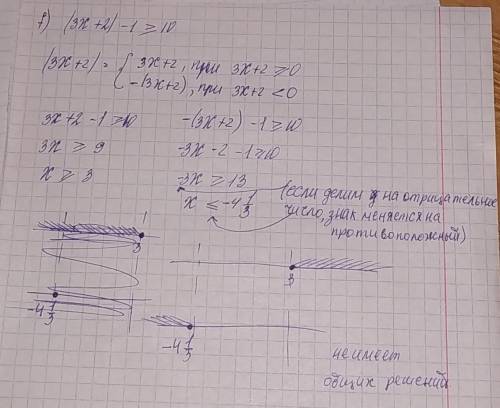 f) |3x+2|-1≥10
|3x+2|= { 3x+2, при 3x+2≥0
-(3x+2), при 3x+2<0
3x+2-1≥10 -(3x+2)-1≥10
3x≥9 -3x-2-1≥10
x≥3 -3x≥13 (если делим на отрицательное
x≤-4 1/3 число, знак меняется на
противоположный)
3
-4 1/3
3
-4 1/3
не имеет
общих решений